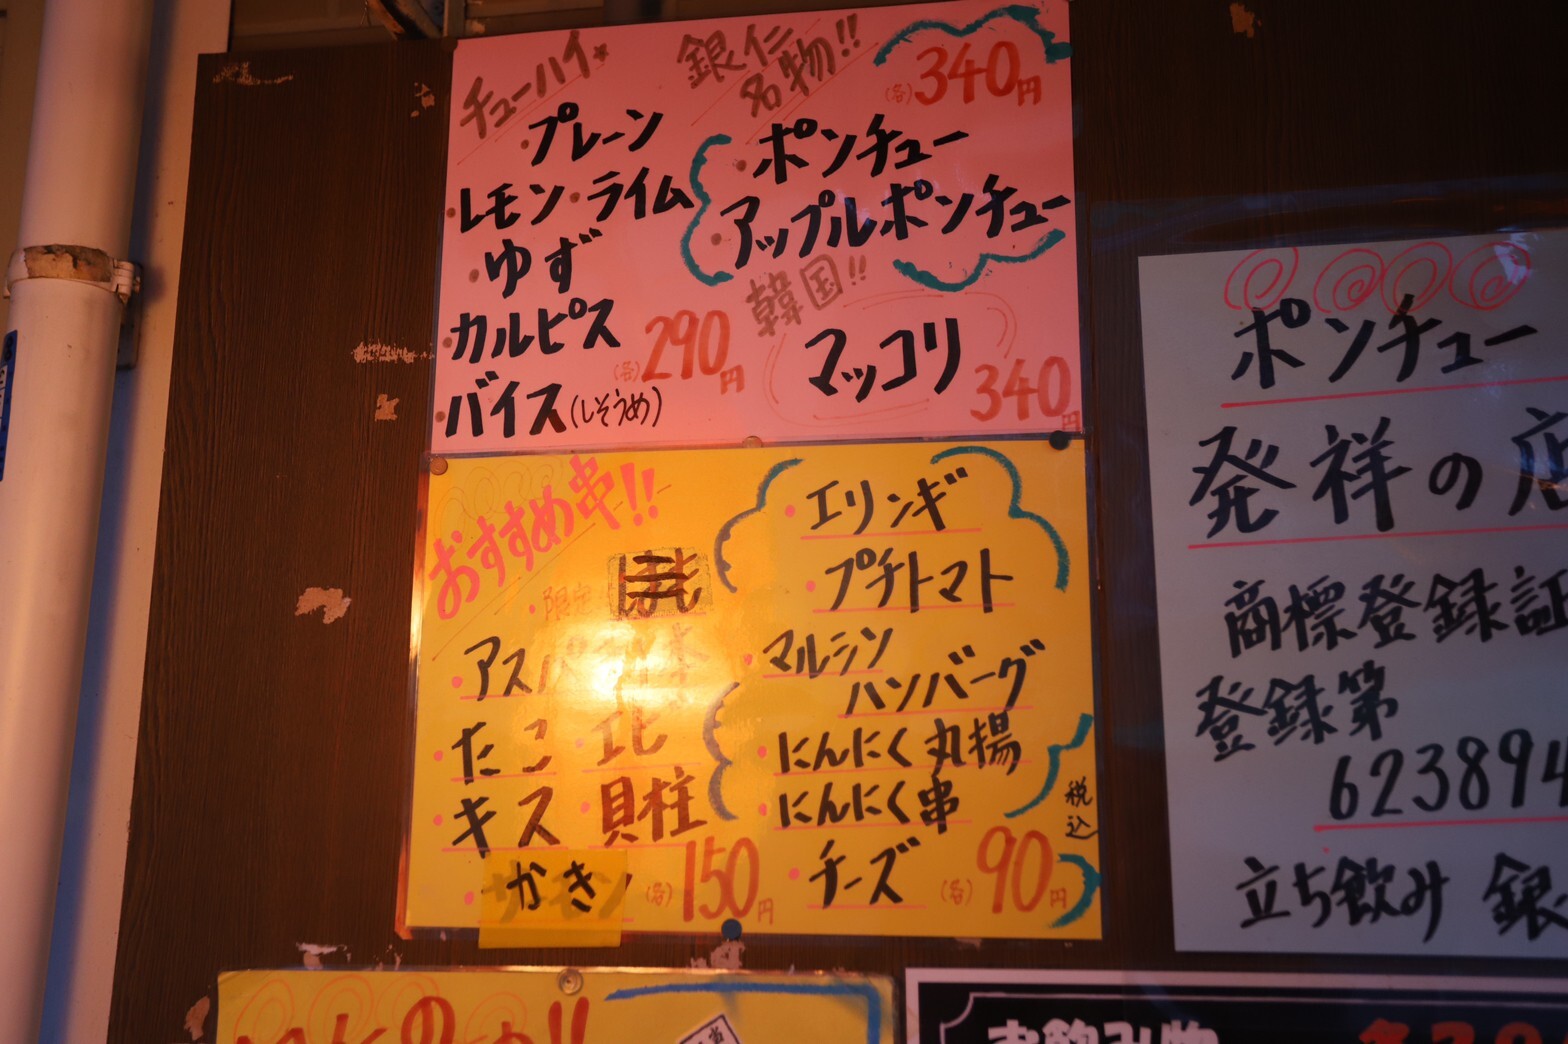 チューハイ
・プレーン
・レモン・ライム
・ゆず
・カルピス
・バイス(しそうめ)
(各)290円
銀仁
名物!!
(各)340円
・ポンチュー
・アップルポンチュー
韓国!!
マッコリ
340円
おすすめ串!!
・限定
・アスパラ
・たこ・エビ
・キス・貝柱
・かき
(各)150円
・エリンギ
・プチトマト
・マルシン
ハンバーグ
・にんにく丸揚
・にんにく串
・チーズ
(各)90円
税込
ポンチュー
発祥の店
商標登録証
登録第
623894
立ち飲み 銀
お飲み物